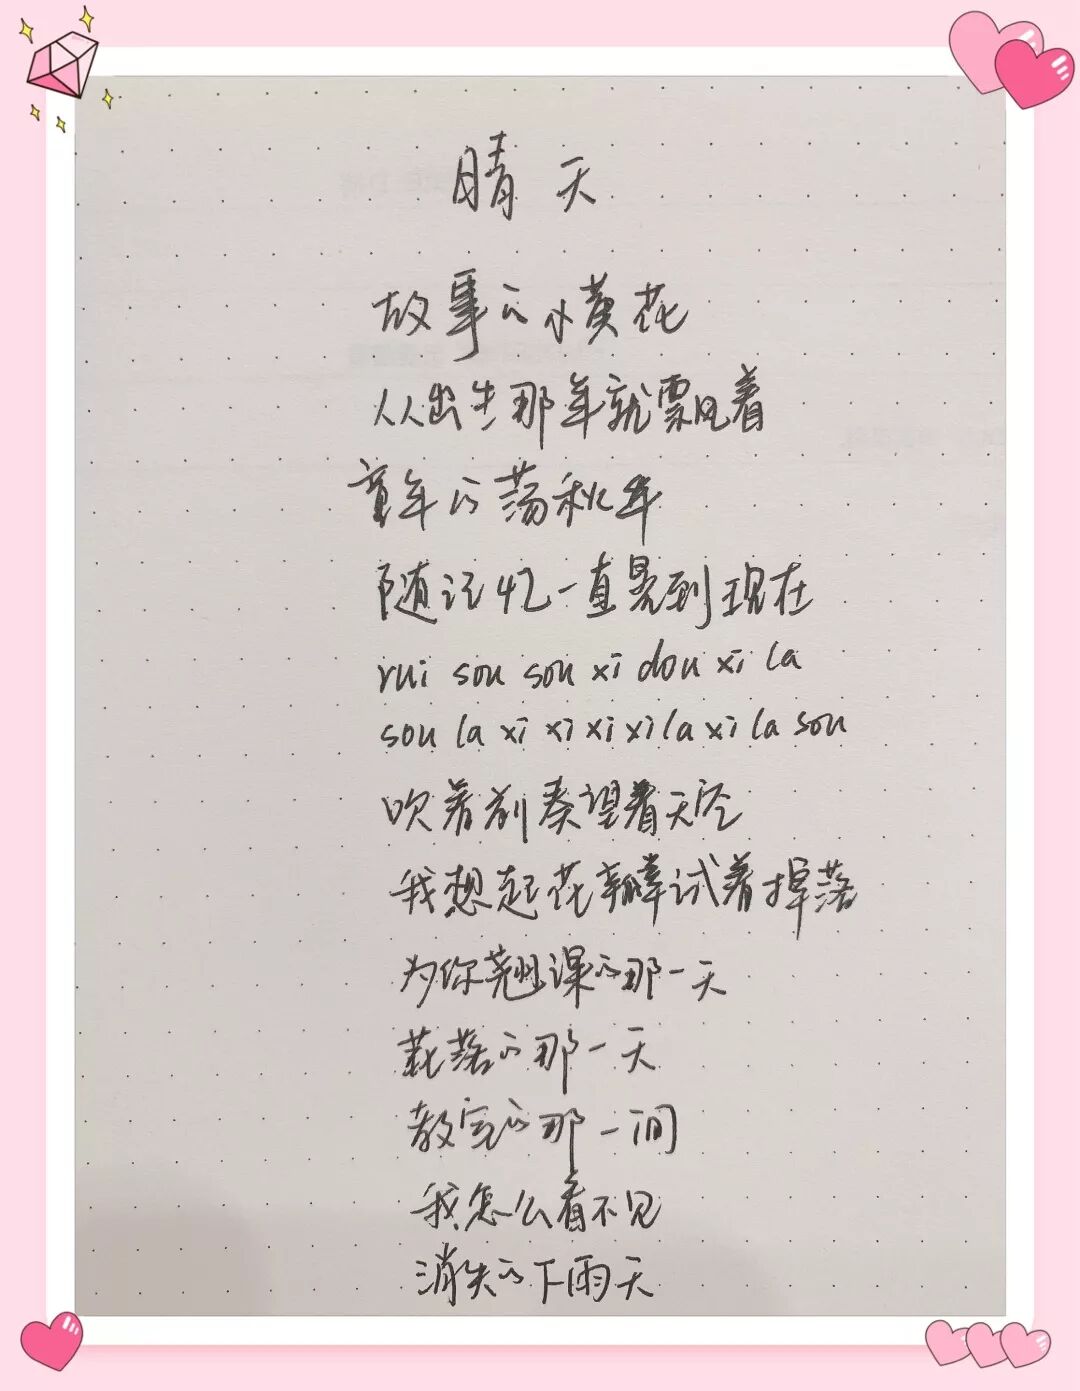 晴天
故事的小黄花
从出生那年就飘着
童年的荡秋千
随记忆一直晃到现在
rui sou sou xi dou xi la
sou la xi xi xi xi la xi la sou
吹着前奏望着天空
我想起花瓣试着掉落
为你翘课的那一天
花落的那一天
教室的那一间
我怎么看不见
消失的下雨天